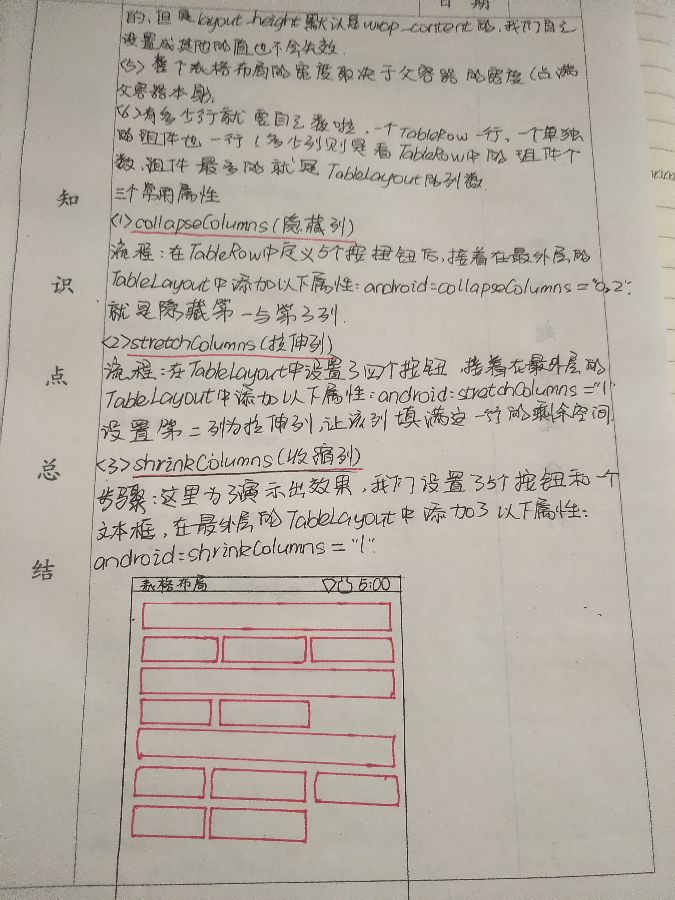 日 期
的,但是layout_height默认是wrap_content的,我们自己
设置成其他的值也不会失效.
<5>整个表格布局的宽度取决于父容器的宽度(占满
父容器本身).
<6>有多少行就要自己数啦,一个TableRow一行,一个单独
的组件也一行(多少列则是看TableRow中的组件个
数,组件最多的就是TableLayout的列数.
三个常用属性
<1>collapseColumns(隐藏列)
流程:在TableRow中定义5个按扭钮后,接着在最外层的
TableLayout中添加以下属性:android=collapseColumns="0,2".
就是隐藏第一与第3列.
<2>stretchColumns(拉伸列)
流程:在TableLayout中设置3四个按钮,接着在最外层的
TableLayout中添加以下属性:android:stretchColumns="1"
设置第二列为拉伸列,让该列填满这一行的剩余空间.
<3>shrinkColumns(收缩列)
步骤:这里为了演示出效果,我们设置了5个按钮和一个
文本框,在最外层的TableLayout中添加了以下属性:
android=shrinkColumns="1".
知
识
点
总
结
表格布局 5:00